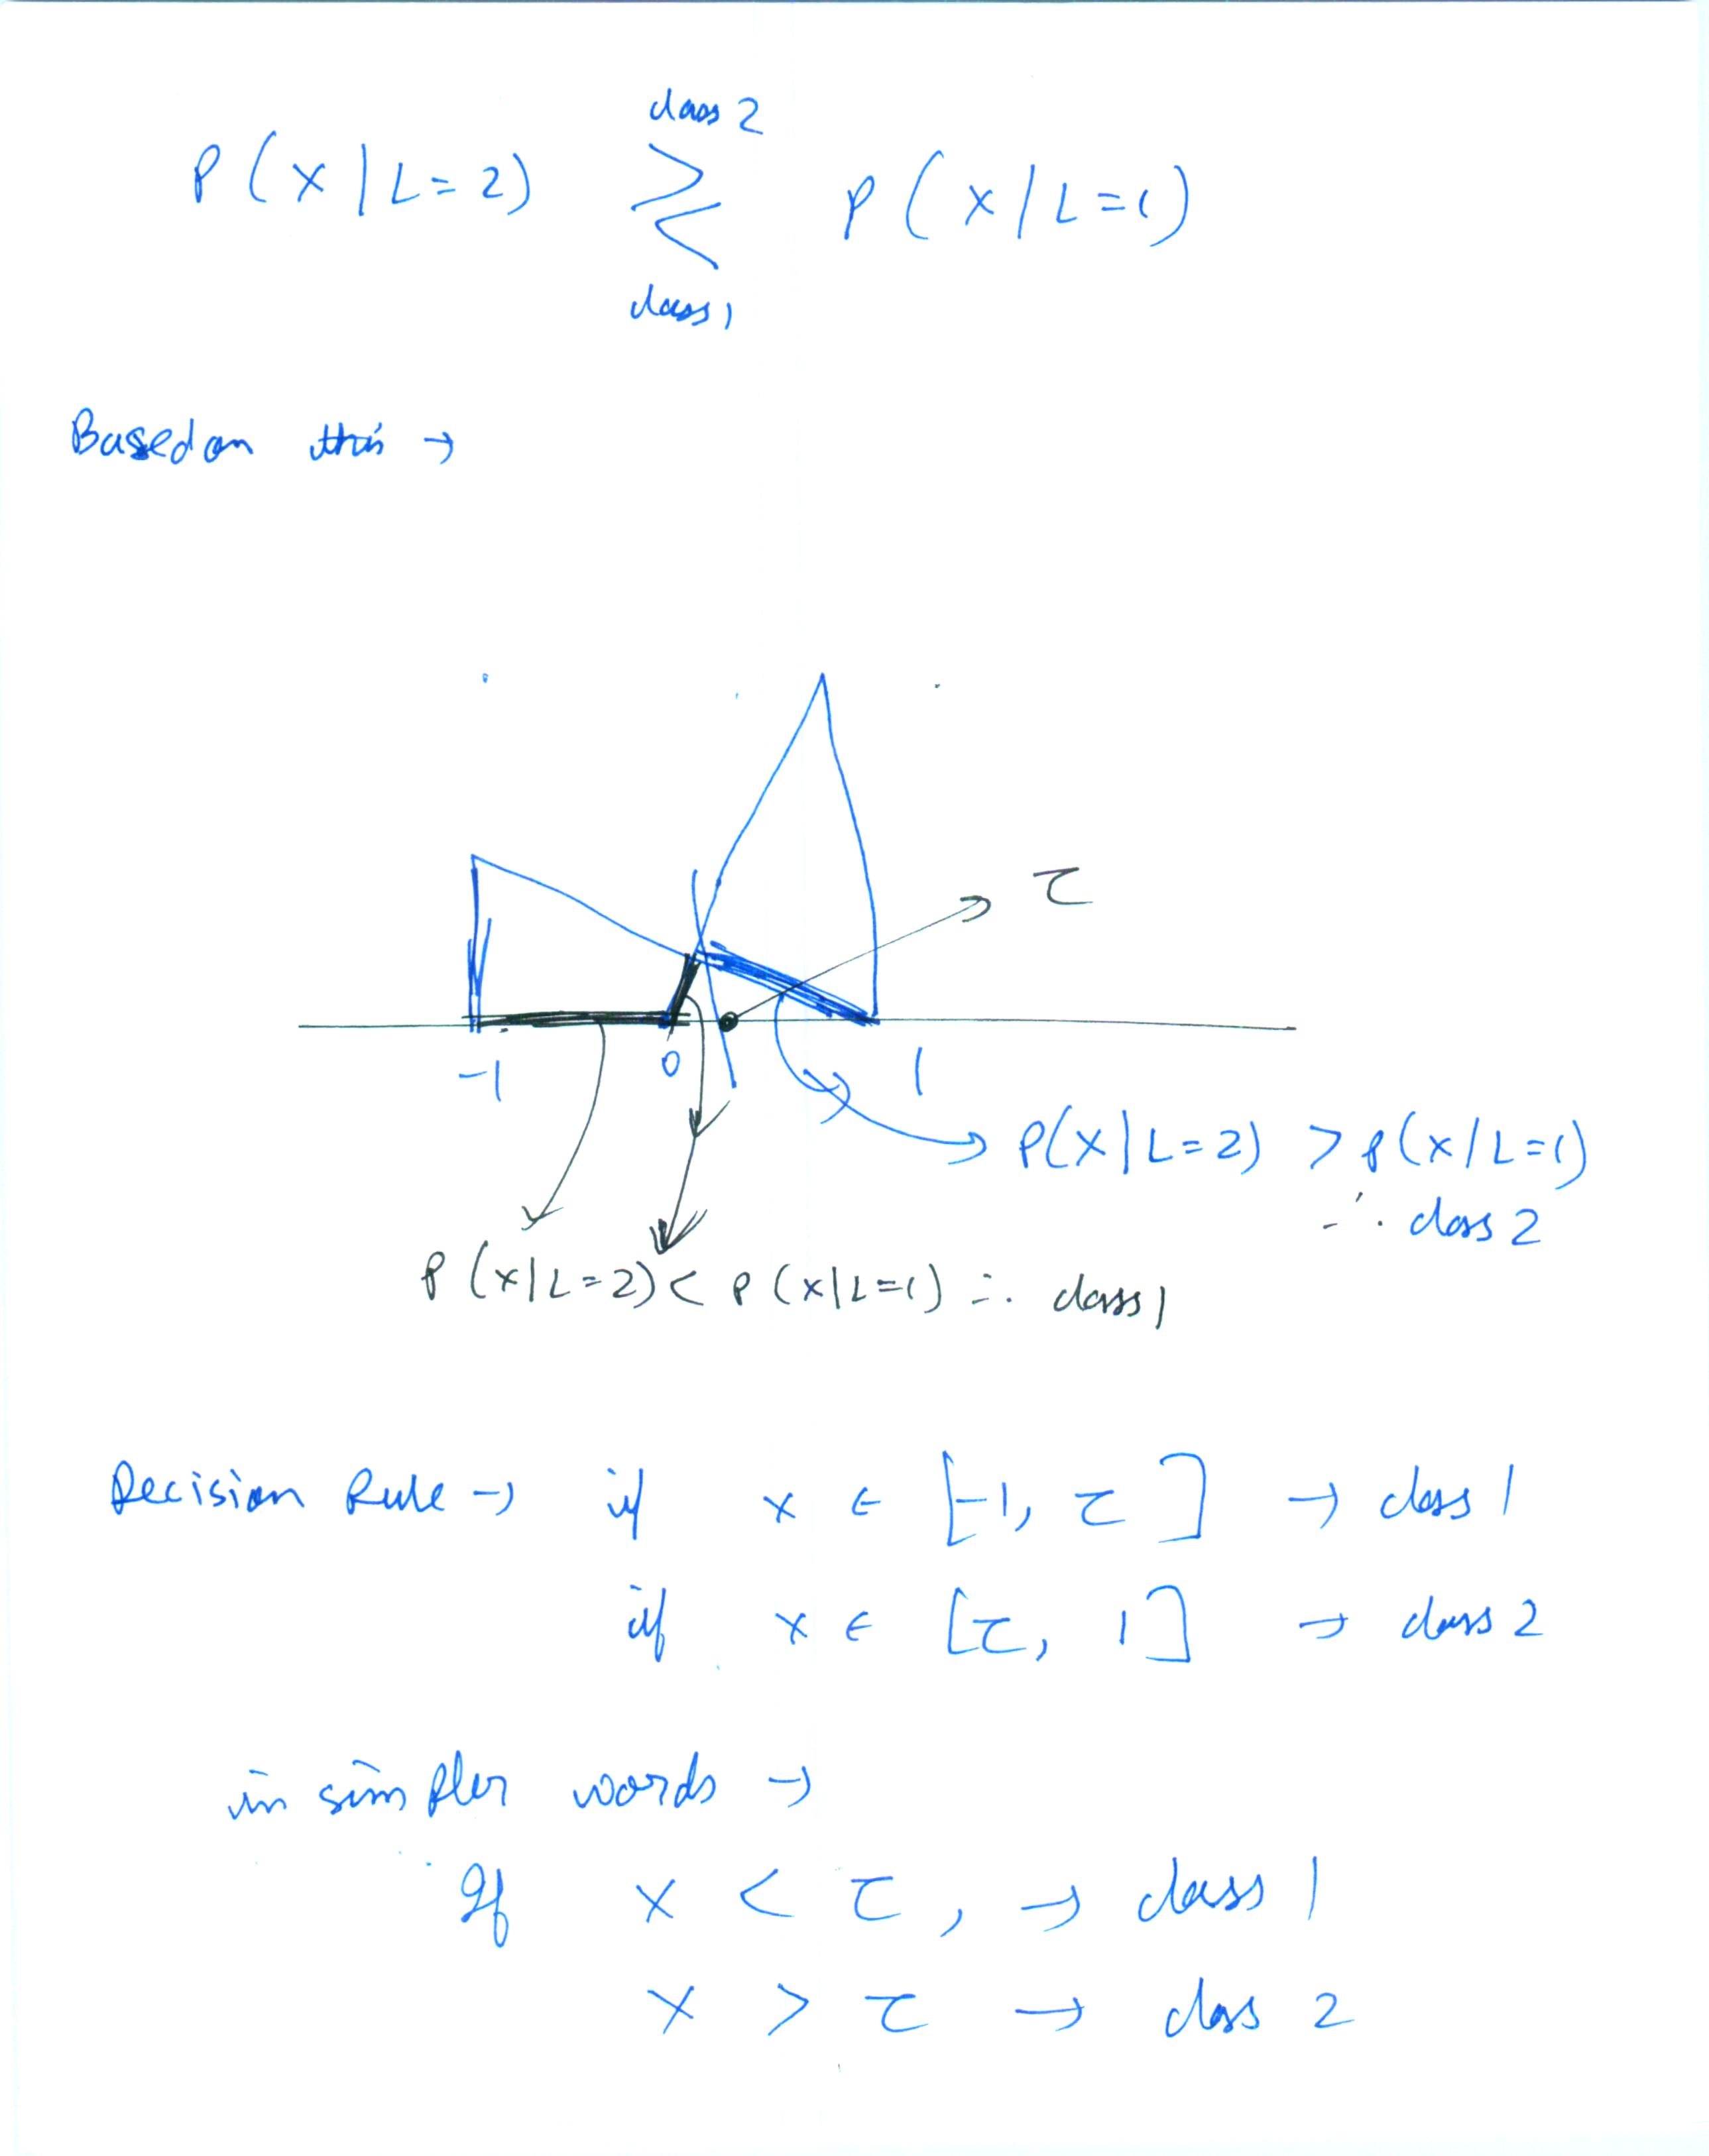 class 2
P(x|L=2) ≷ P(x|L=1)
class 1
Based on this →
τ
-1 0 1
P(x|L=2) > P(x|L=1)
∴ class 2
P(x|L=2) < P(x|L=1) ∴ class 1
Decision Rule → if x ∈ [-1, τ] → class 1
if x ∈ [τ, 1] → class 2
in simpler words →
If x < τ, → class 1
x > τ → class 2